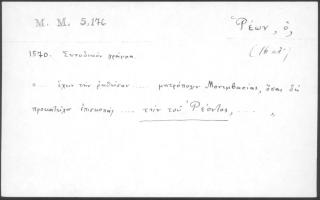 M. M. 5,176
Ῥέων, ὁ,
(16 αἰ.)
1570. Συνοδικὸν γράμμα.
«... ἔχων τὴν μητρόπολιν Μονεμβασίας, ὅσας δὲ
προκατεῖχεν ἐπισκοπάς .... τὴν τοῦ Ῥέοντος, .... »